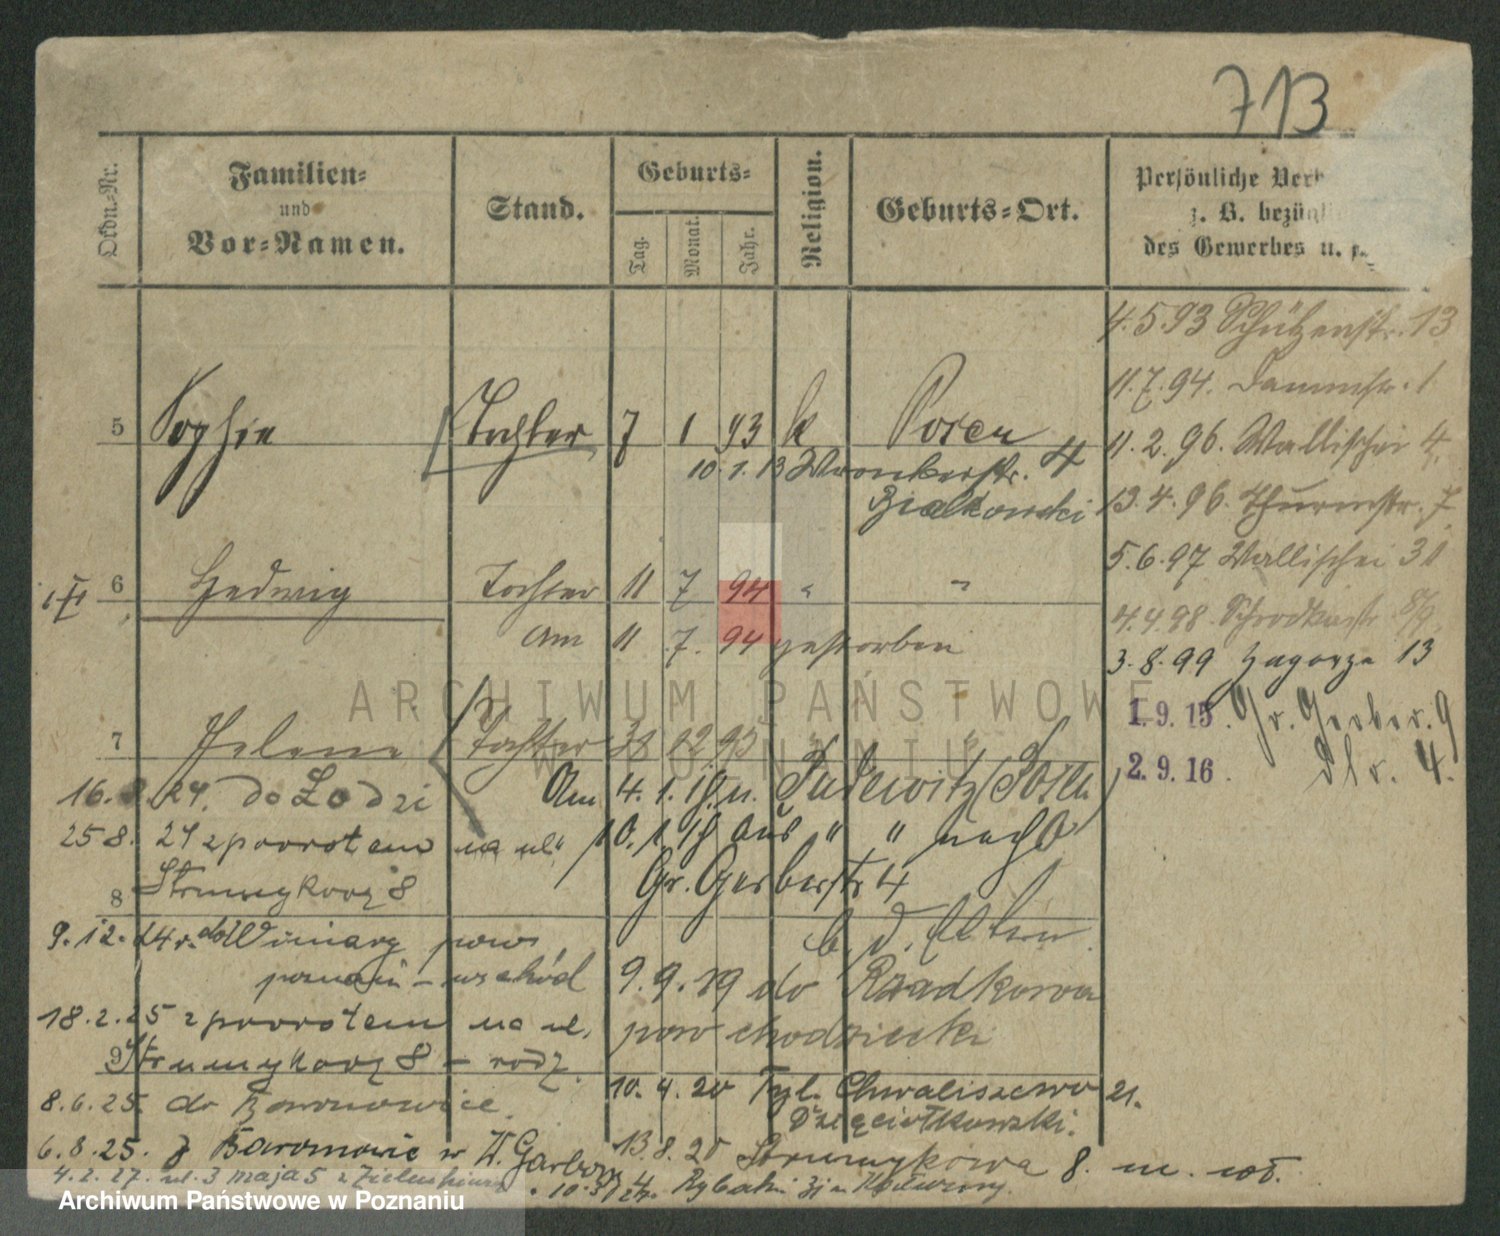 713
Ordn.-Nr.
Familien-
und
Vor-Namen.
Stand.
Geburts-
Tag.
Monat.
Jahr.
Religion.
Geburts-Ort.
Persönliche Verh
z. B. bezügli
des Gewerbes u.
4.5.93 Schützenstr. 13
11.7.94. Dammstr. 1
11.2.96. Wallischei 4.
13.4.96. Thurmstr. 7
5.6.97 Wallischei 31
4.4.98. Schrodkastr 8/9
3.8.99 Zagorze 13
1.9.15. Gr. Gerber. 9
2.9.16. Str. 4.
5 Sophie Tochter 7 1 93 k Posen
10.1.13 Wronkerstr. 4
Bialkowski
6 Hedwig Tochter 11 7 94 " "
Am 11 7. 94 gestorben
7 Helene Tochter 31 12 95 " "
16. 24. do Łodzi Am 4.1.19. n. Pudewitz (Posen)
25 8. 24 z powrotem na ul. 10.1.19 aus " " nach
Strumykową 8 Gr. Gerberstr 4
8 b. d. Eltern.
9.12.24 r. do Winiary pow.
poznań - wschód 9.9.19 do Rzadkowa
18.2.25 z powrotem na ul. pow chodzieski
9 Strumykową 8 - rodz.
10.4.20 Tyl. Chwaliszewo 21.
8.6.25. do Baronowice. Dzięciołkowski.
6.8.25. z Baronowic w W. Garbary 13.8.20 Strumykowa 8. m. wł.
4.2.27. ul. 3 maja 5 z Rybaki
ARCHIWUM PAŃSTWOWE
W POZNANIU
Archiwum Państwowe w Poznaniu